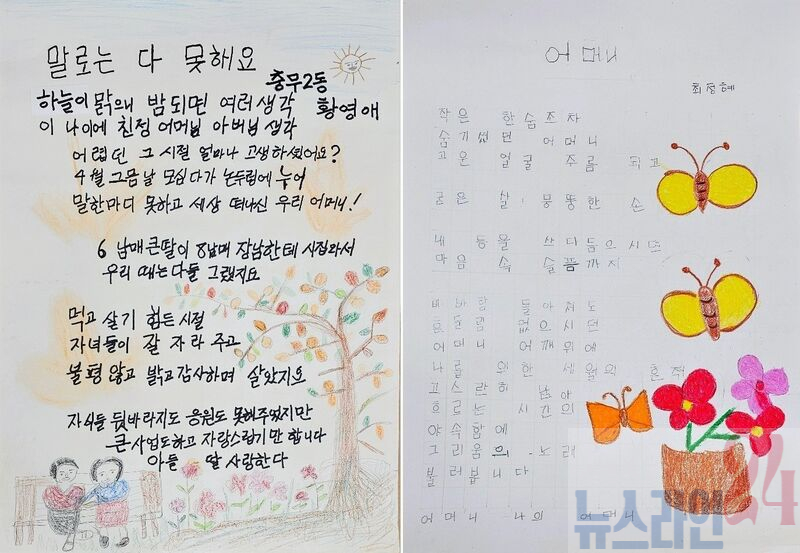 말로는 다 못해요
충무2동
황영애
하늘이 맑으며 밤되면 여러생각
이 나이에 친정 어머님 아버님 생각
어렵던 그 시절 얼마나 고생하셨어요?
4월 그믐날 모심다가 논두렁에 누어
말한마디 못하고 세상 떠나신 우리 어머니!
6 남매 큰딸이 8남매 장남한테 시집와서
우리 때는 다들 그랬지요
먹고 살기 힘든 시절
자녀들이 잘 자라 주고
불평않고 밝고 감사하며 살았지요
자식들 뒷바라지도 응원도 못해주었지만
큰사업도하고 자랑스럽기만 합니다
아들 딸 사랑한다
어머니
최정혜
작은 한숨조차
숨기셨던 어머니
고운 얼굴 주름 되고
굽은 살, 뭉뚱한 손
내 등을 쓰다듬으시던
마음 속 슬픔까지
비바람 몰아쳐도
흔들림 없으시던
어머니 어깨위에
나를 위한 세월의 흔적
고스란히 남아
흐르는 시간의
야속함에
그리움의 노래
불러봅니다
어머니 나의 어머니
뉴스라인24